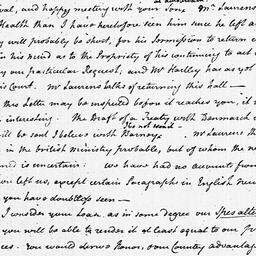 val, and happy meeting with your Son. Mr. Laurens
Health than I have heretofore seen him since he left
y will probably be short, for his Permission to return
in his mind as to the Propriety of his continuing to act
y our particular Request, and Mr Hartley has as yet
is Court. Mr. Laurens talks of returning this Fall —
this Letter may be inspected before it reaches you, it
interesting. The Draft of a Treaty with Denmark
is not recd
ill be sent I believe with Mr. Laurens th
in the british ministry probable, but of whom the ne
ed is uncertain: we have had no accounts from
ou left us, except certain Paragraphs in English
you have doubtless seen —
I consider your Loan as in some degree our Spes alte
you will be able to render it at least equal to our
ces. You would derive Honor, & our Country advantag